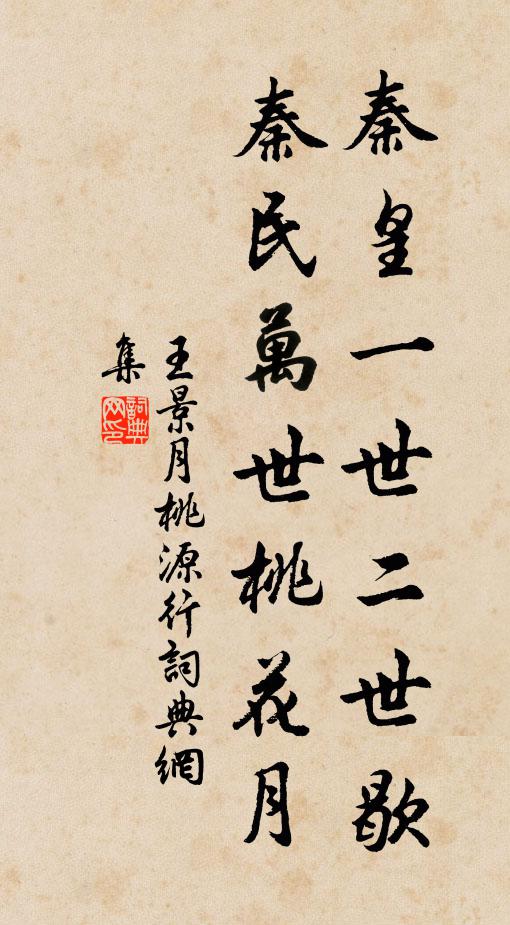 秦皇一世二世歇
秦民萬世桃花月
王景月桃源行詞典網
集
詞典
网印